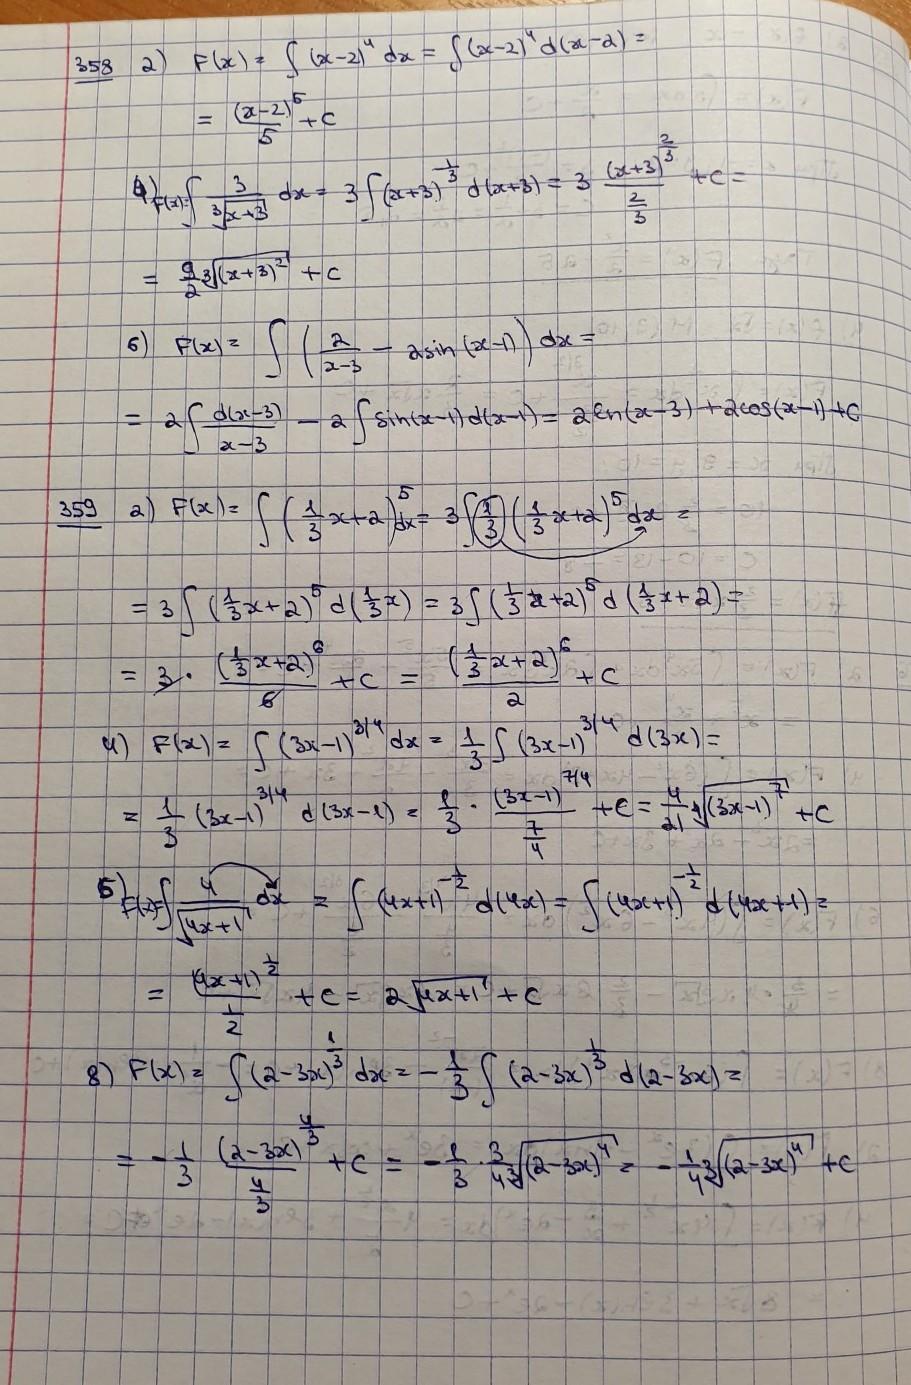 358 2) F(x) = ∫ (x-2)⁴ dx = ∫ (x-2)⁴ d(x-2) =
= (x-2)⁵/5 + C
4) F(x)= ∫ 3/∛(x+3) dx = 3 ∫ (x+3)^(1/3) d(x+3) = 3 (x+3)^(2/3)/(2/3) + C =
= 9/2 ∛((x+3)²) + C
6) F(x) = ∫ (2/(x-3) - 2sin(x-1)) dx =
= 2 ∫ d(x-3)/(x-3) - 2 ∫ sin(x-1) d(x-1) = 2ln(x-3) + 2cos(x-1) + C
359 2) F(x) = ∫ (1/3 x+2)⁵ dx = 3 ∫ 1/3 (1/3 x+2)⁵ dx =
= 3 ∫ (1/3 x+2)⁵ d(1/3 x) = 3 ∫ (1/3 x+2)⁵ d(1/3 x+2) =
= 3 · (1/3 x+2)⁶/6 + C = (1/3 x+2)⁶/2 + C
4) F(x) = ∫ (3x-1)^(3/4) dx = 1/3 ∫ (3x-1)^(3/4) d(3x) =
= 1/3 (3x-1)^(3/4) d(3x-1) = 1/3 · (3x-1)^(7/4)/(7/4) + C = 4/21 ∜((3x-1)⁷) + C
F(x)= ∫ 4/√(4x+1) dx = ∫ (4x+1)^(-1/2) d(4x) = ∫ (4x+1)^(-1/2) d(4x+1) =
= (4x+1)^(1/2)/(1/2) + C = 2√(4x+1) + C
8) F(x) = ∫ (2-3x)^(1/3) dx = -1/3 ∫ (2-3x)^(1/3) d(2-3x) =
= -1/3 (2-3x)^(4/3)/(4/3) + C = -1/3 · 3/4 ∛((2-3x)⁴) = -1/4 ∛((2-3x)⁴) + C